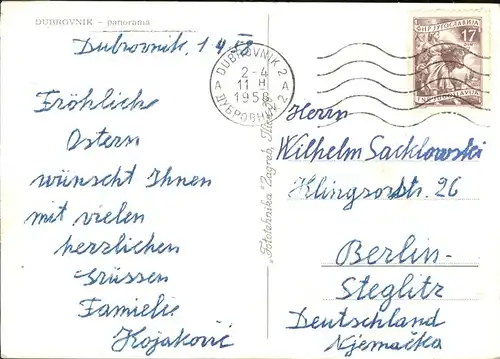 DUBROVNIK - panorama
Dubrovnik, 1 4 58
Fröhliche
Ostern
wünscht Ihnen
mit vielen
herzlichen
Grüssen
Familie
Kojaković
DUBROVNIK 2
2-4
11 H
1958
A A
ДУБРОВНИК 2
"Fototehnika" Zagreb,
ФНР ЈУГОСЛАВИЈА
17
DIN
FNR JUGOSLAVIJA
Herrn
Wilhelm Sacklowski
Klingsorstr. 26
Berlin-
Steglitz
Deutschland
Njemačka